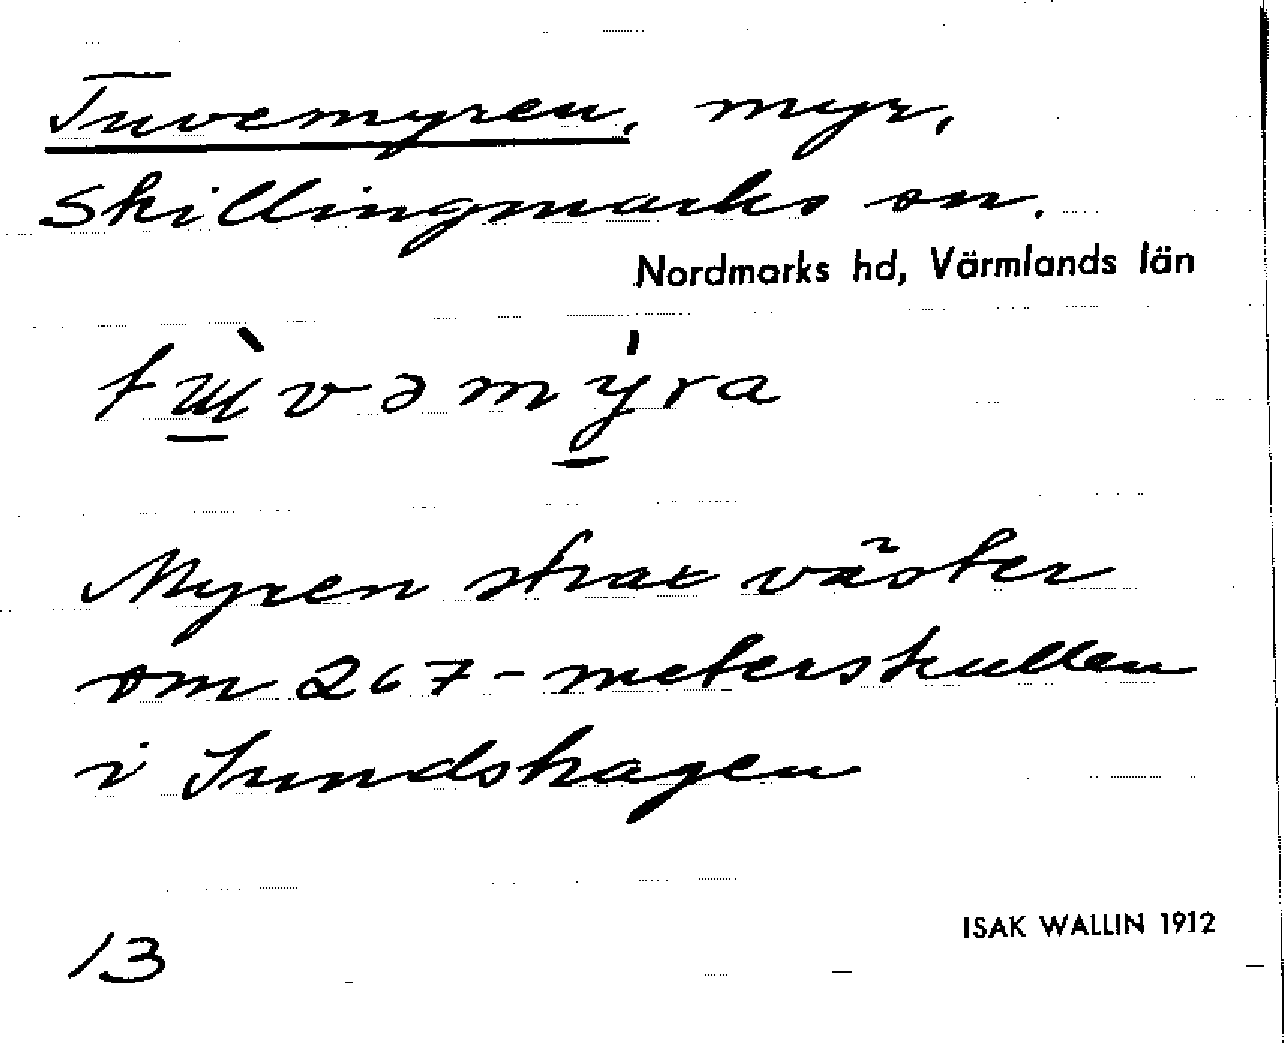 Tuvemyren, myr,
Skillingmarks sn.
Nordmarks hd, Värmlands län
tɯ̱̀vəmý̱ra
Myren strax väster
om 267-meterskullen
i Sundshagen
ISAK WALLIN 1912
13